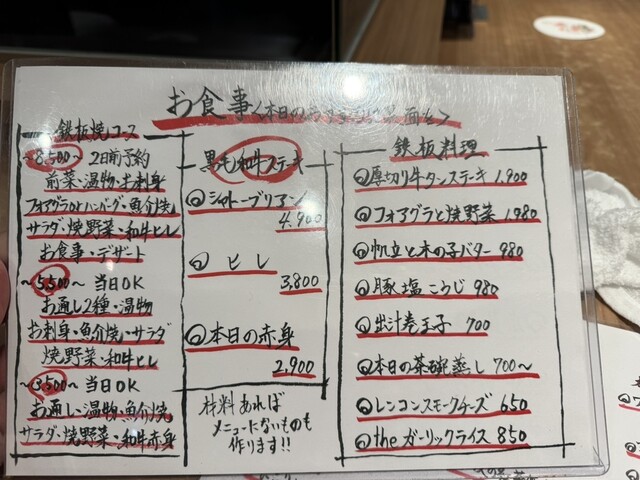 お食事<本日のおすすめは裏面を>
鉄板焼コース
~8,500~ 2日前予約
前菜・温物・お刺身
フォアグラロトハンバーグ・魚介焼
サラダ・焼野菜・和牛ヒレ
お食事・デザート
~5,500~ 当日OK
お通し2種・温物
お刺身・魚介焼・サラダ
焼野菜・和牛ヒレ
~3,500~ 当日OK
お通し・温物・魚介焼
サラダ・焼野菜・和牛赤身
黒毛和牛ステーキ
シャトーブリアン
4,900
ヒレ
3,800
本日の赤身
2,900
材料あれば
メニューにないものも
作ります!!
鉄板料理
厚切り牛タンステーキ 1,900
フォアグラと焼野菜 1,980
帆立と木の子バター 980
豚塩こうじ 980
出汁巻玉子 700
本日の茶碗蒸し 700~
レンコンスモークチーズ 650
theガーリックライス 850